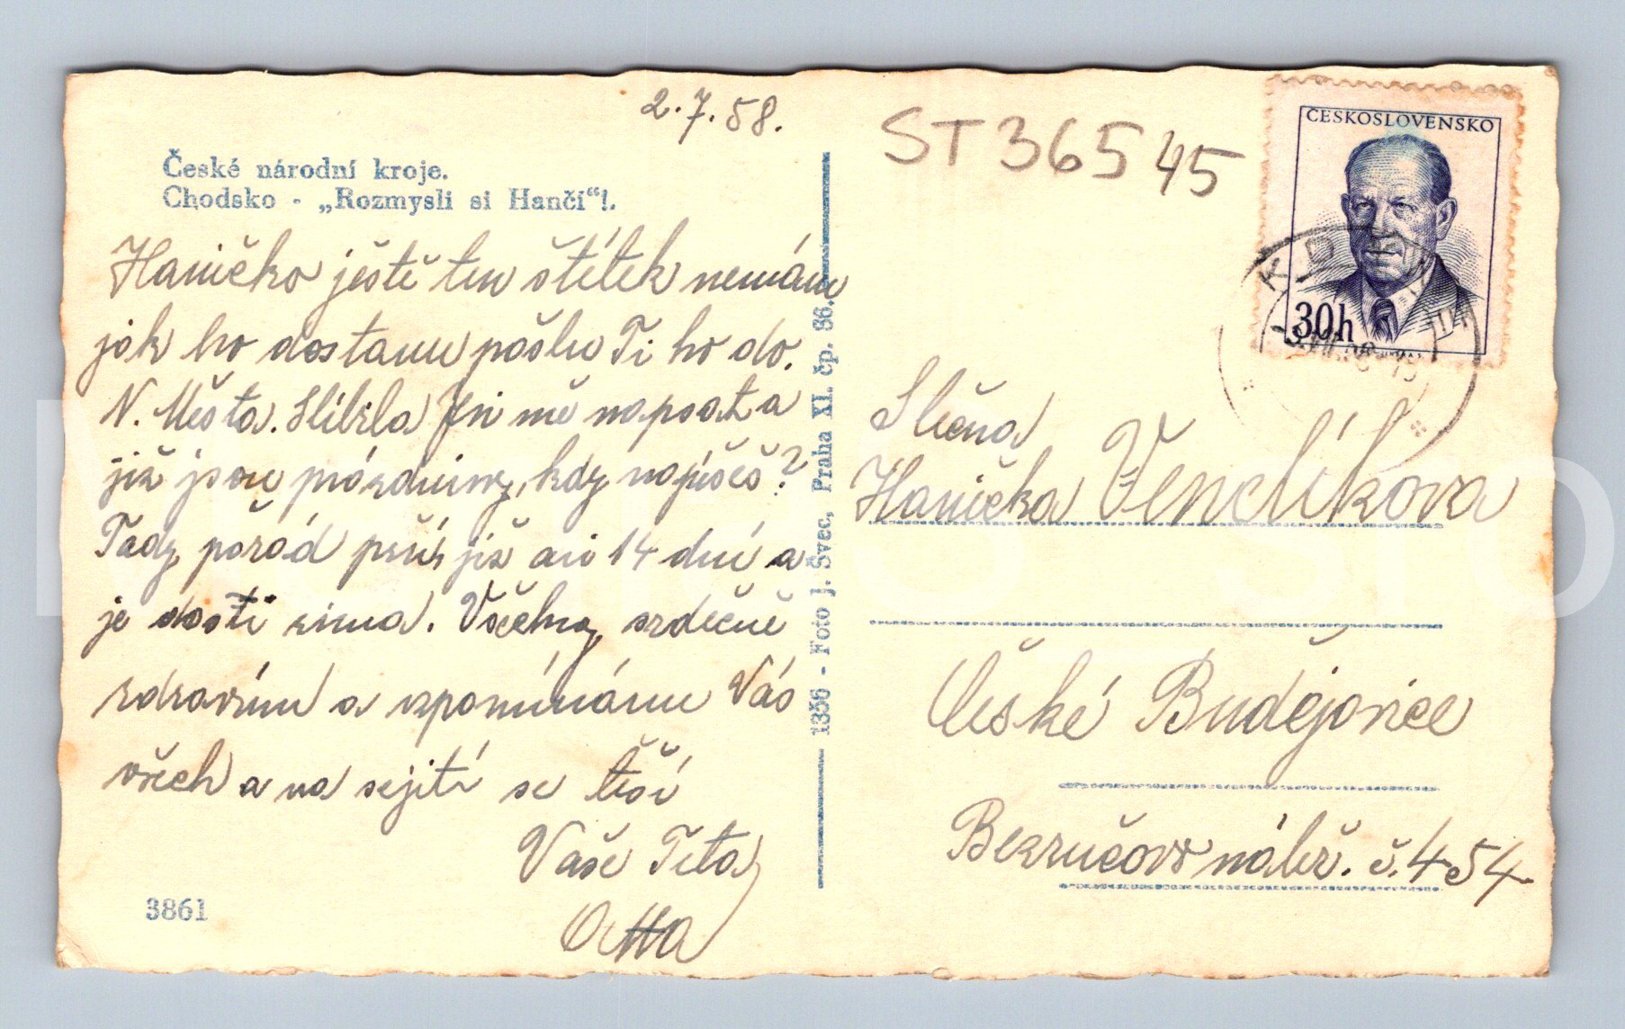 2.7.58.
České národní kroje.
Chodsko - „Rozmysli si Hančí"!.
Haničko ještě ten štítek nemám
jak ho dostanu pošlu Ti ho do.
N. Města. Slíbila jsi mě napsat a
již jsou prázdniny, kdy napíšeš?
Tady pořád prší, již asi 14 dní a
je dosti zima. Všechny srdečně
zdravím a vzpomínám Vás
všech a na sejití se těší
Vaše Teta
Otta
3861
1356 - Foto J. Švec, Praha XI. čp. 36.
ST 36545
ČESKOSLOVENSKO
30h
Slečna
Hanička Venclíkova
České Budějovice
Bezručovo nábř. č. 454